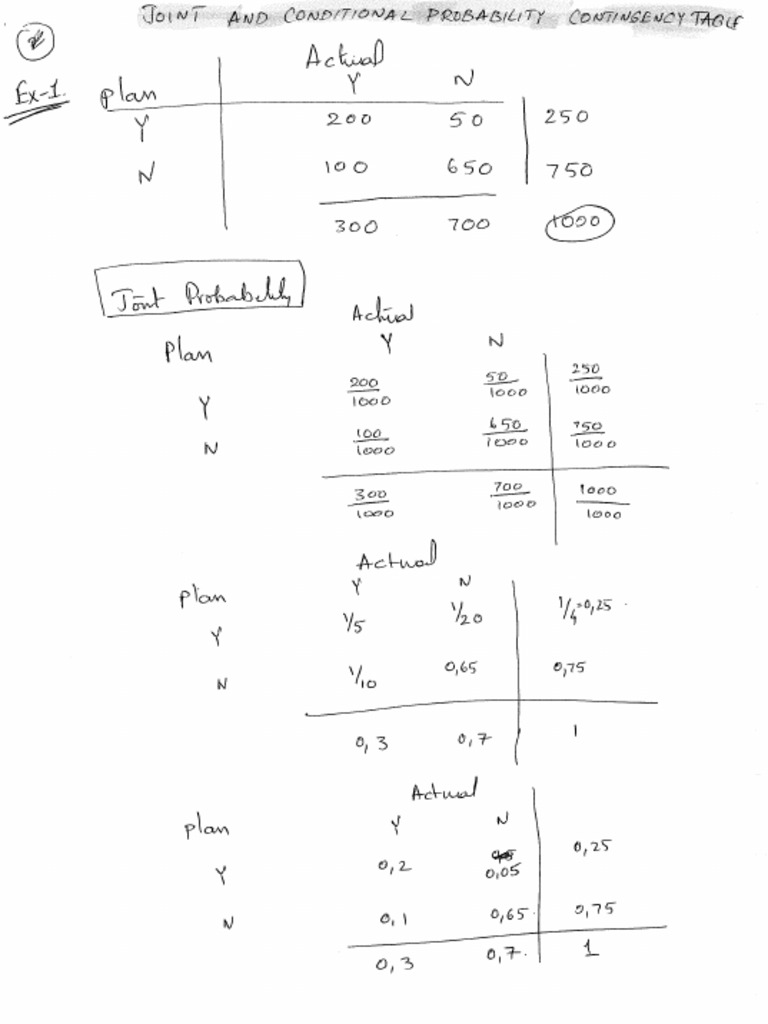 JOINT AND CONDITIONAL PROBABILITY CONTINGENCY TABLE
2
Ex-1.
Actual
Plan Y N
Y 200 50 250
N 100 650 750
300 700 1000
Joint Probability
Actual
Plan Y N
Y 200/1000 50/1000 250/1000
N 100/1000 650/1000 750/1000
300/1000 700/1000 1000/1000
Actual
Plan Y N
Y 1/5 1/20 1/4=0,25
N 1/10 0,65 0,75
0,3 0,7 1
Actual
Plan Y N
Y 0,2 0,05 0,25
N 0,1 0,65 0,75
0,3 0,7 1